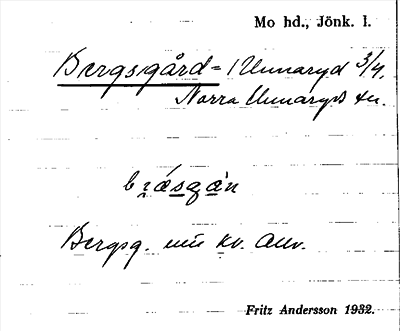 Mo hd., Jönk. l.
Bergsgård = 1 Unnaryd 3/4.
Norra Unnaryds sn.
Bergsg. kv.
Fritz Andersson 1932.